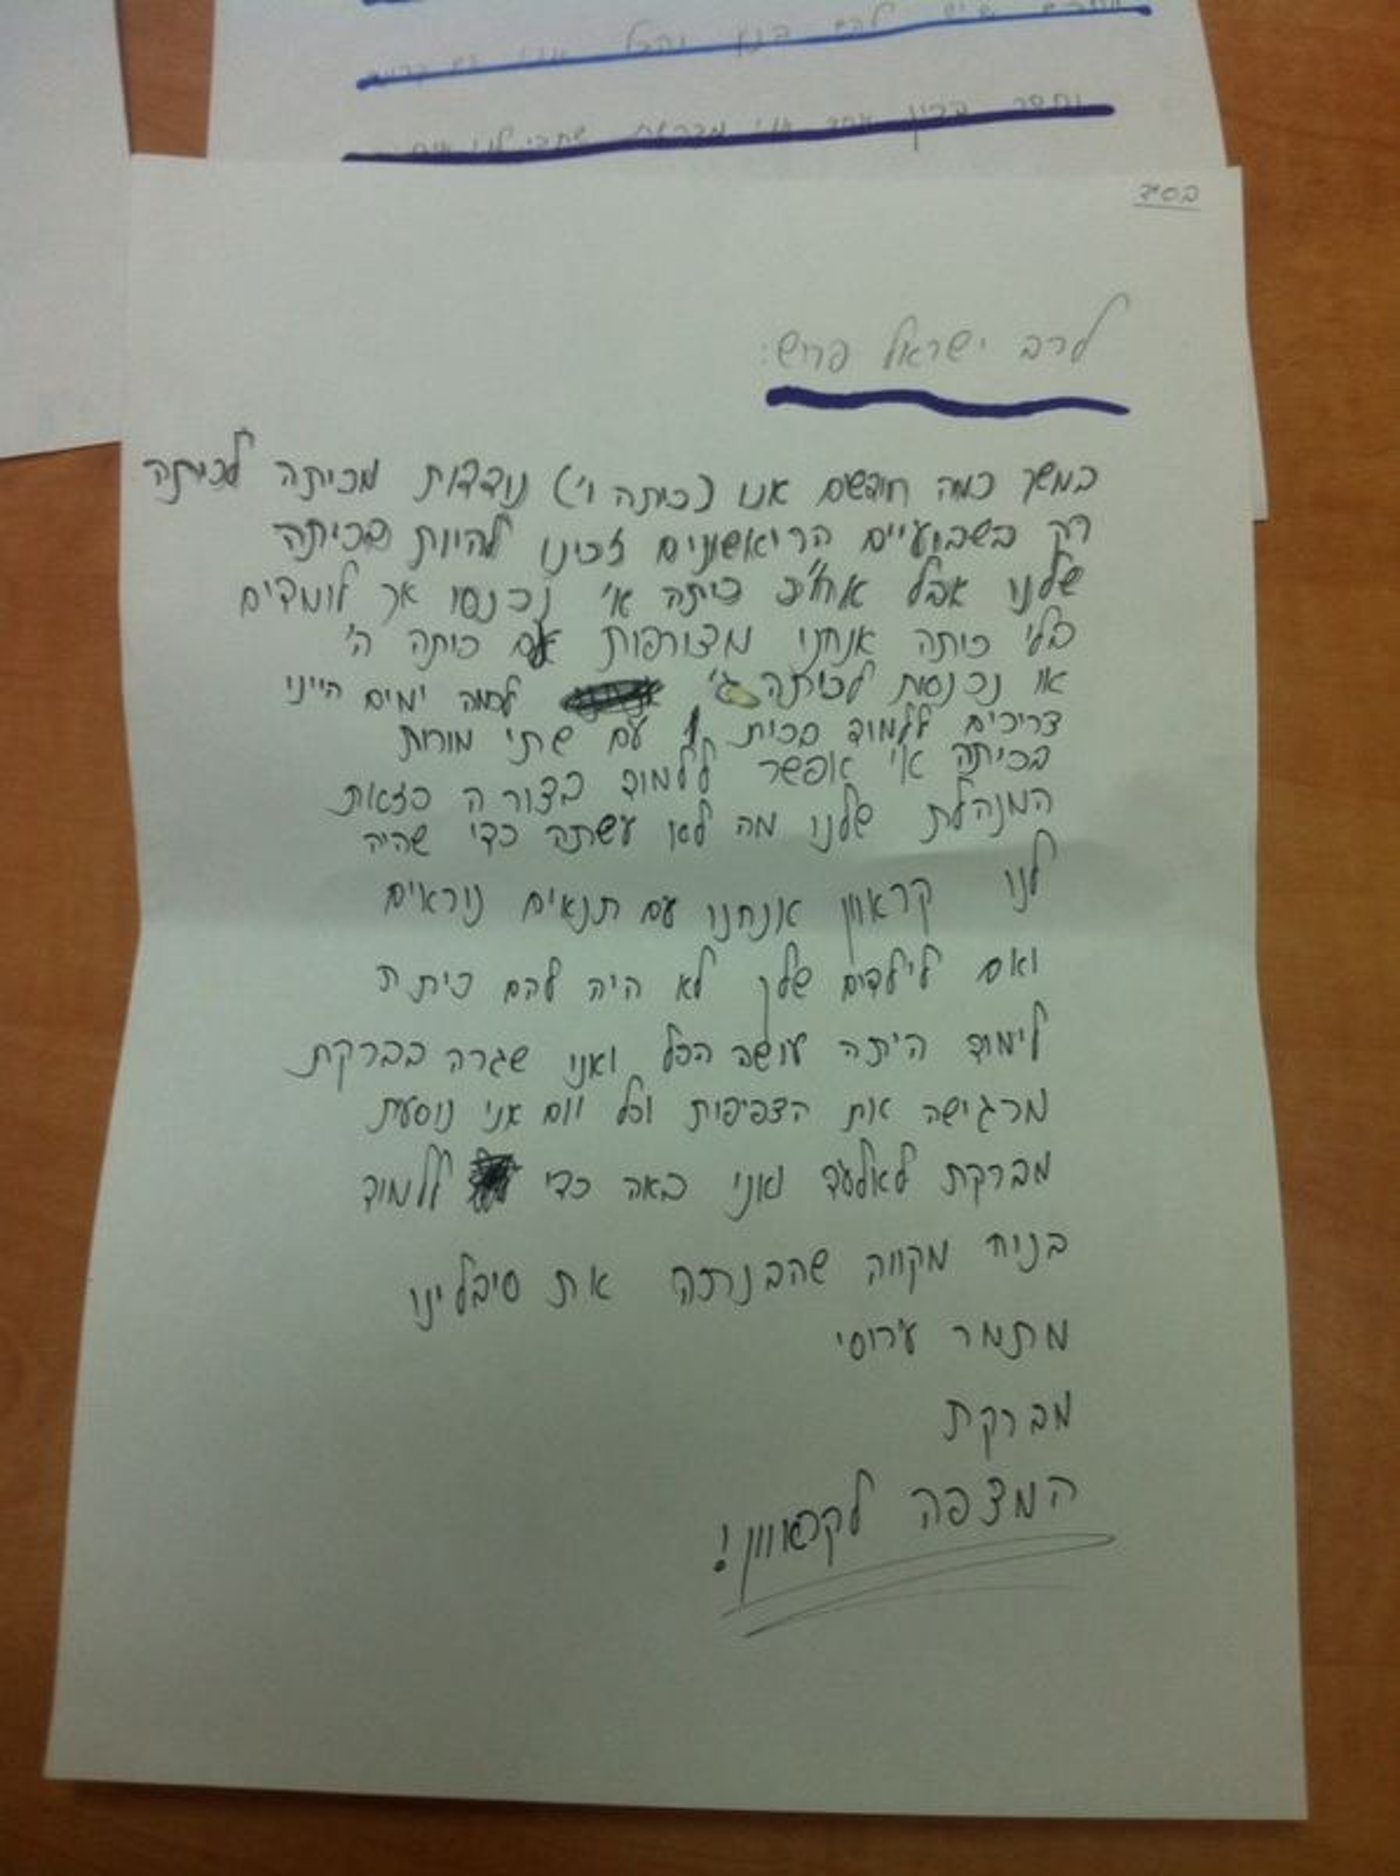 בסיד
לרב ישראל פרוש:
במשך כמה חודשים אנו (כיתה ו') נודדות מכיתה לכיתה
רק בשבועיים הריאשונים זכינו להיות בכיתה
שלנו אבל אח"כ כיתה א' נכנסו אך לומדים
בלי כיתה אנחנו מצורפות עם כיתה ה'
או נכנסות לכיתה ג' לכמה ימים היינו
צריכים ללמוד עם שתי מורות
בכיתה אי אופשר ללמוד בצורה כזאת
המנהלת שלנו מה לא עשתה כדי שהיה
לנו קראוון אנחנו עם תנאים נוראים
ואם לילדים שלך לא היה להם כיתת
לימוד היתה עושה הכל ואני שגרה בברקת
מרגישה את הצפיפות וכל יום אני נוסעת
מברקת לאלעד ואני באה כדי ללמוד
בניח מקווה שהבנתה את סיבלינו
מתמר ערוסי
מברקת
המצפה לקראוון!